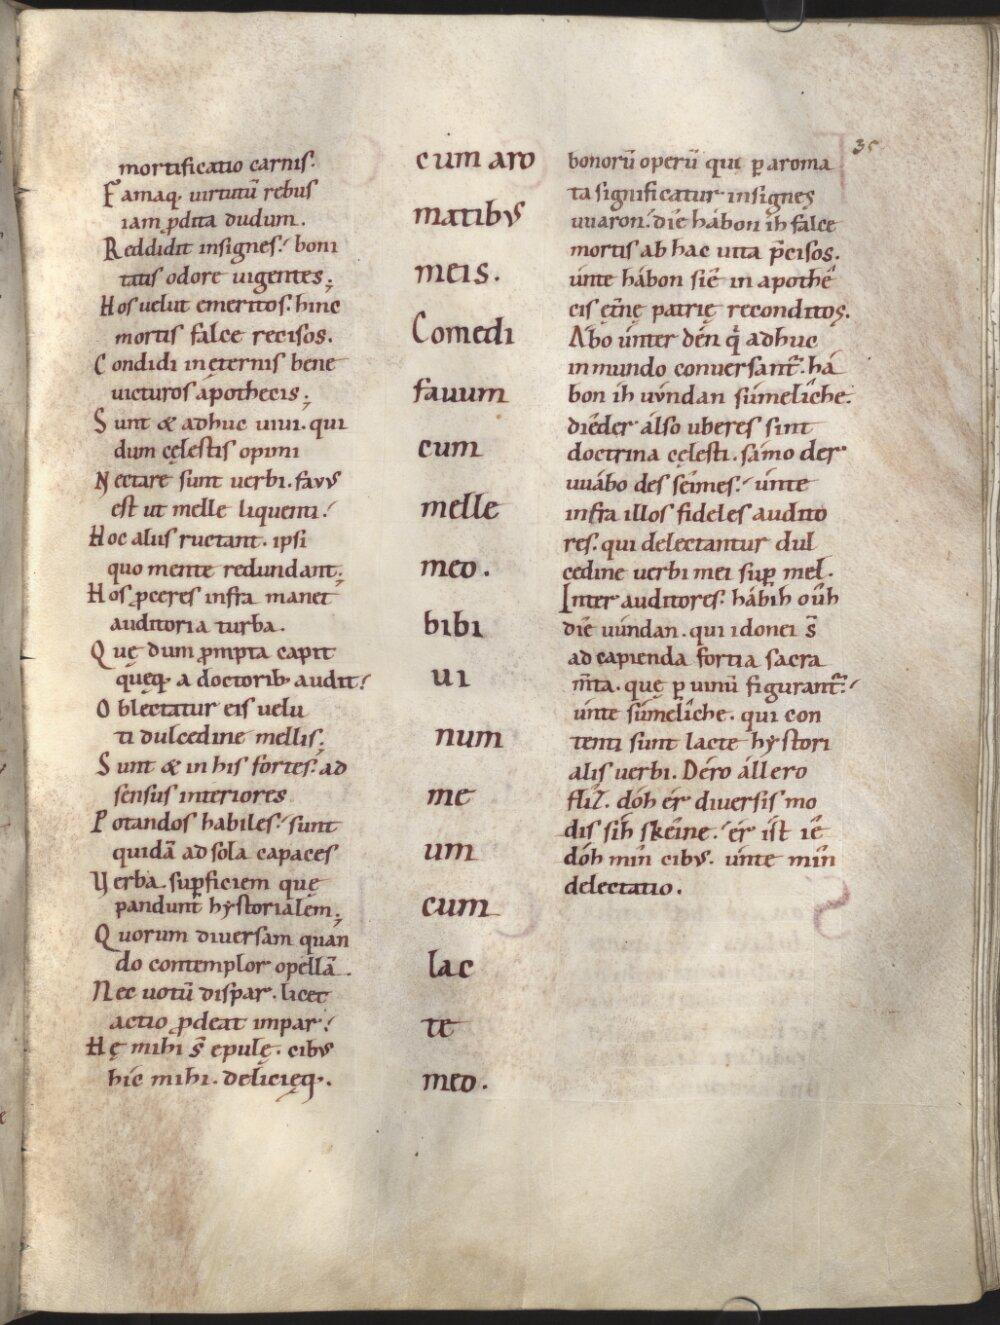 35
mortificatio carnis.
Famaq; virtutū rebus
iam p̄dita dudum.
Reddidit insignes. boni
tatis odore uigentes;
Hos uelut emeritos. hinc
mortis falce recisos.
Condidi in ęternis bene
uicturos ápothecis;
Sunt & adhuc uiui. qui
dum cęlestis opimi
Nectare sunt uerbi. favus
est ut melle liquenti.
Hoc alius ructant. ipsi
quo mente redundant;
Hos p̄ceres infra manet
auditoria turba.
Quę dum p̄mpta capit
quęq; a doctorib; audit.
Oblectatur eis uelu
ti dulcedine mellis;
Sunt & in his fortes. ad
sensus interiores
Potandos habiles. sunt
quidā ad sola capaces
Verba. sup̱ficiem quę
pandunt hẏstorialem;
Quorum diuersam quan
do contemplor opellā.
Nec uotū dispar. licet
actio p̄deat impar.
Hę mihi s̄ epulę. cibus
hic mihi. delicięq;.
cum aro
matibus
meis.
Comedi
fauum
cum
melle
meo.
bibi
ui
num
me
um
cum
lac
te
meo.
bonorū operū qui p̱ aroma
ta significatur insignes
uuaron. dîe hábon ih falce
mortis ab hac uita p̄cisos.
únte hábon sîe in apothe
cis ęt̄nę patrię reconditos.
Abo únter dén q̍ adhuc
in mundo conuersant̃. há
bon ih uúndan súmelîche.
dîeder álso uberes sint
doctrina cęlesti. sámo der
uuábo des séimes. únte
infra illos fideles audito
res. qui delectantur dul
cedine uerbi mei sup̱ mel.
Inter auditores. hábih oûh
dîe uúndan. qui idonei s̄
ad capienda fortia sacra
m̄ta. quę p̱ uinū figurant̃.
únte súmelîche. qui con
tenti sunt lacte hẏstori
alis uerbi. Déro állero
flîz. dóh ér diuersis mo
dis sih skéine. ér ist îe
dóh mîn cibus. únte mîn
delectatio.